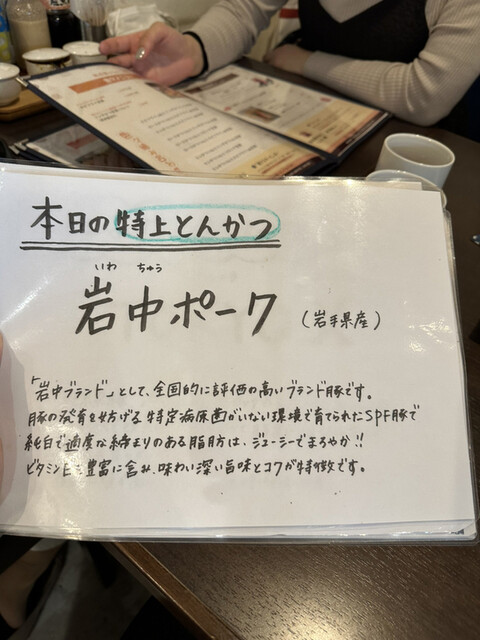 本日の特上とんかつ
いわ ちゅう
岩中ポーク (岩手県産)
「岩中ブランド」として、全国的に評価の高いブランド豚です。
豚の発育を妨げる特定病原菌がいない環境で育てられたSPF豚で
純白で適度な締まりのある脂肪は、ジューシーでまろやか!!
ビタミンEも豊富に含み、味わい深い旨味とコクが特徴です。